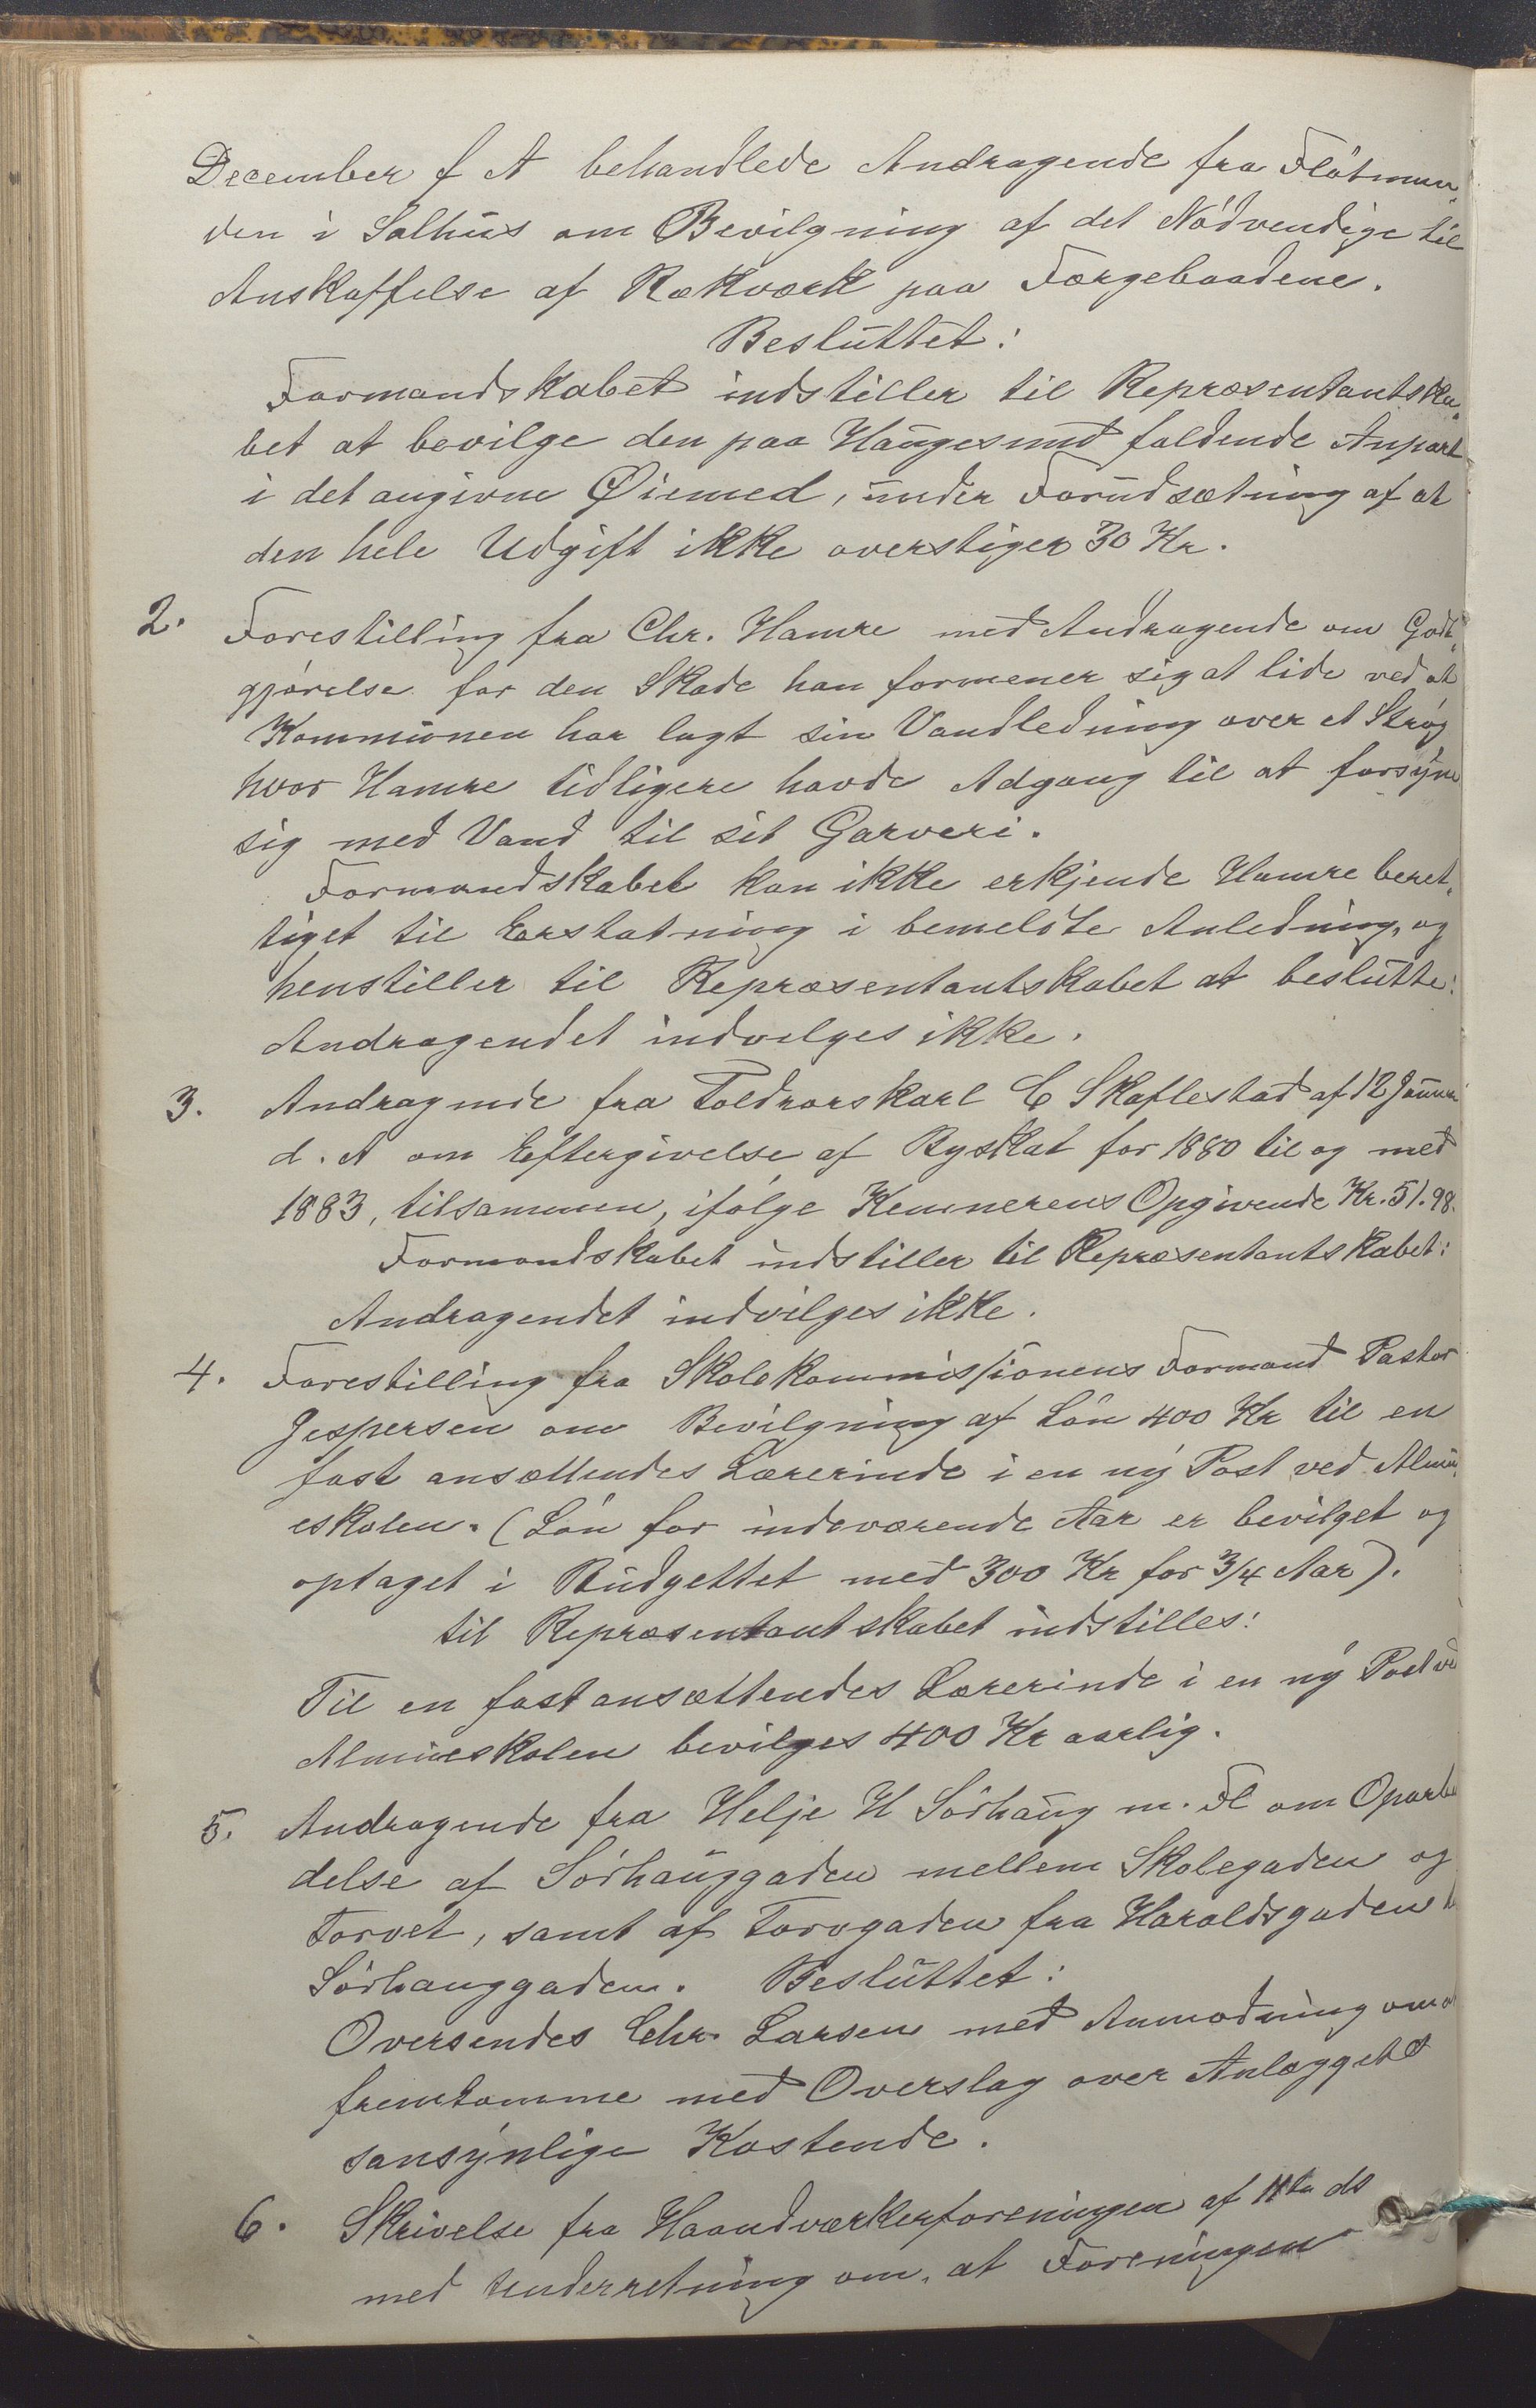 December f A behandlede Andragende fra Flötman„
den i Salhus om Bevilgning af det Nödvendige til
Anskaffelse af Rækværk paa Færgebaadene.
Besluttet:
Formandskabet indstiller til Repræsentantska„
bet at bevilge den paa Haugesund faldende Anpart
i det angivne Øiemed, under Forudsætning af at
den hele Udgift ikke overstiger 30 Kr.
2. Forestilling fra Chr. Hamre med Andragende om Godt„
gjörelse for den Skade han formener sig at lide ved at
Kommunen har lagt sin Vandledning over et Strøg
hvor Hamre tidligere havde Adgang til at forsyne
sig med Vand til sit Garveri.
Formandskabet kan ikke erkjende Hamre beret„
tiget til Erstatning i bemeldte Anledning, og
henstiller til Repræsentantskabet at beslutte:
Andragendet indvilges ikke.
3. Andragende fra Toldrorskarl C Skaflestad af 12 Januar
d. A om Eftergivelse af Byskat for 1880 til og med
1883, tilsammen, ifølge Kemnerens Opgivende Kr. 51.98.
Formandskabet indstiller til Repræsentantskabet:
Andragendet indvilges ikke.
4. Forestilling fra Skolekommissionens Formand Pastor
Jespersen om Bevilgning af Lön 400 Kr til en
fast ansættendes Lærerinde i en ny Post ved Almu„
eskolen. (Lön for indeværende Aar er bevilget og
optaget i Budgettet med 300 Kr for 3/4 Aar).
til Repræsentantskabet indstilles:
Til en fast ansættendes Lærerinde i en ny Post ved
Almueskolen bevilges 400 Kr aarlig.
5. Andragende fra Helje H Sörhaug m. Fl om Oparbei
delse af Sörhauggaden mellem Skolegaden og
Torvet, samt af Torvgaden fra Haraldsgaden
Sörhauggaden. Besluttet:
Oversendes Chr. Larsen med Anmodning om at
fremkomme med Overslag over Anlægget's
sansynlige Kostende.
6. Skrivelse fra Haandværkerforeningen af 11te ds
med Underretning om, at Foreningen